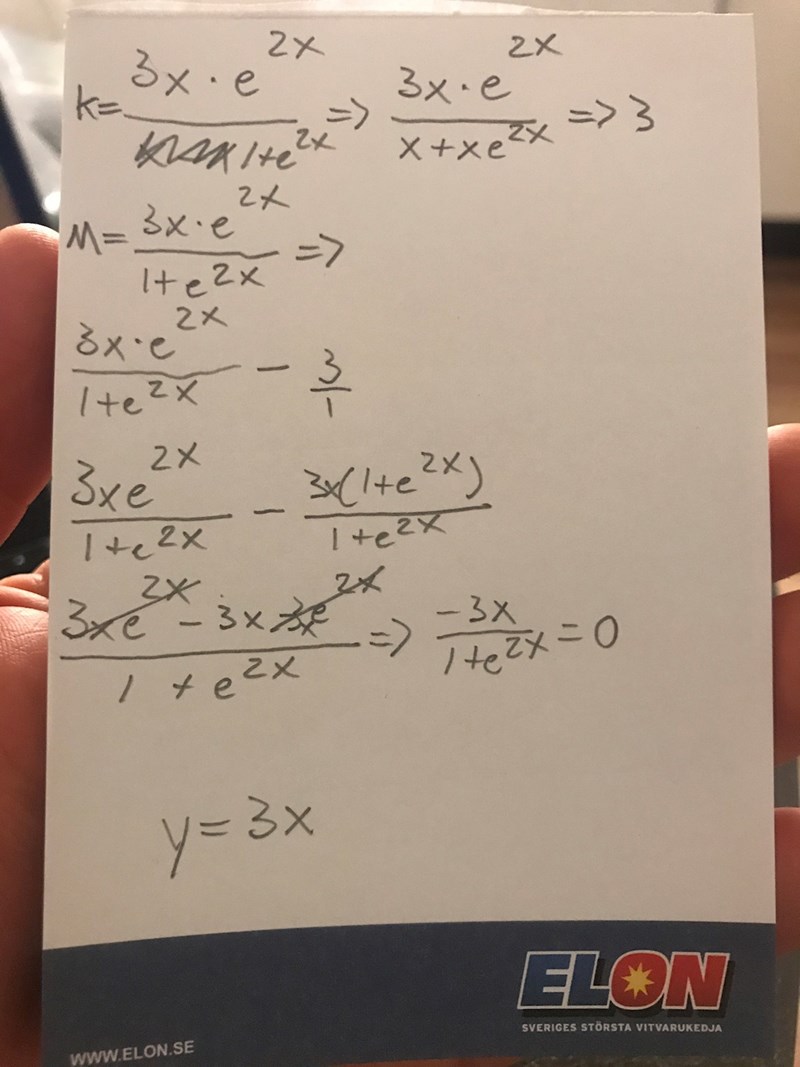 k= 3x · e^2x / 1+e^2x => 3x · e^2x / x+xe^2x => 3
M= 3x · e^2x / 1+e^2x =>
3x · e^2x / 1+e^2x - 3/1
3xe^2x / 1+e^2x - 3x(1+e^2x) / 1+e^2x
3xe^2x - 3x - 3xe^2x / 1 + e^2x => -3x / 1+e^2x = 0
y = 3x
ELON
SVERIGES STÖRSTA VITVARUKEDJA
WWW.ELON.SE